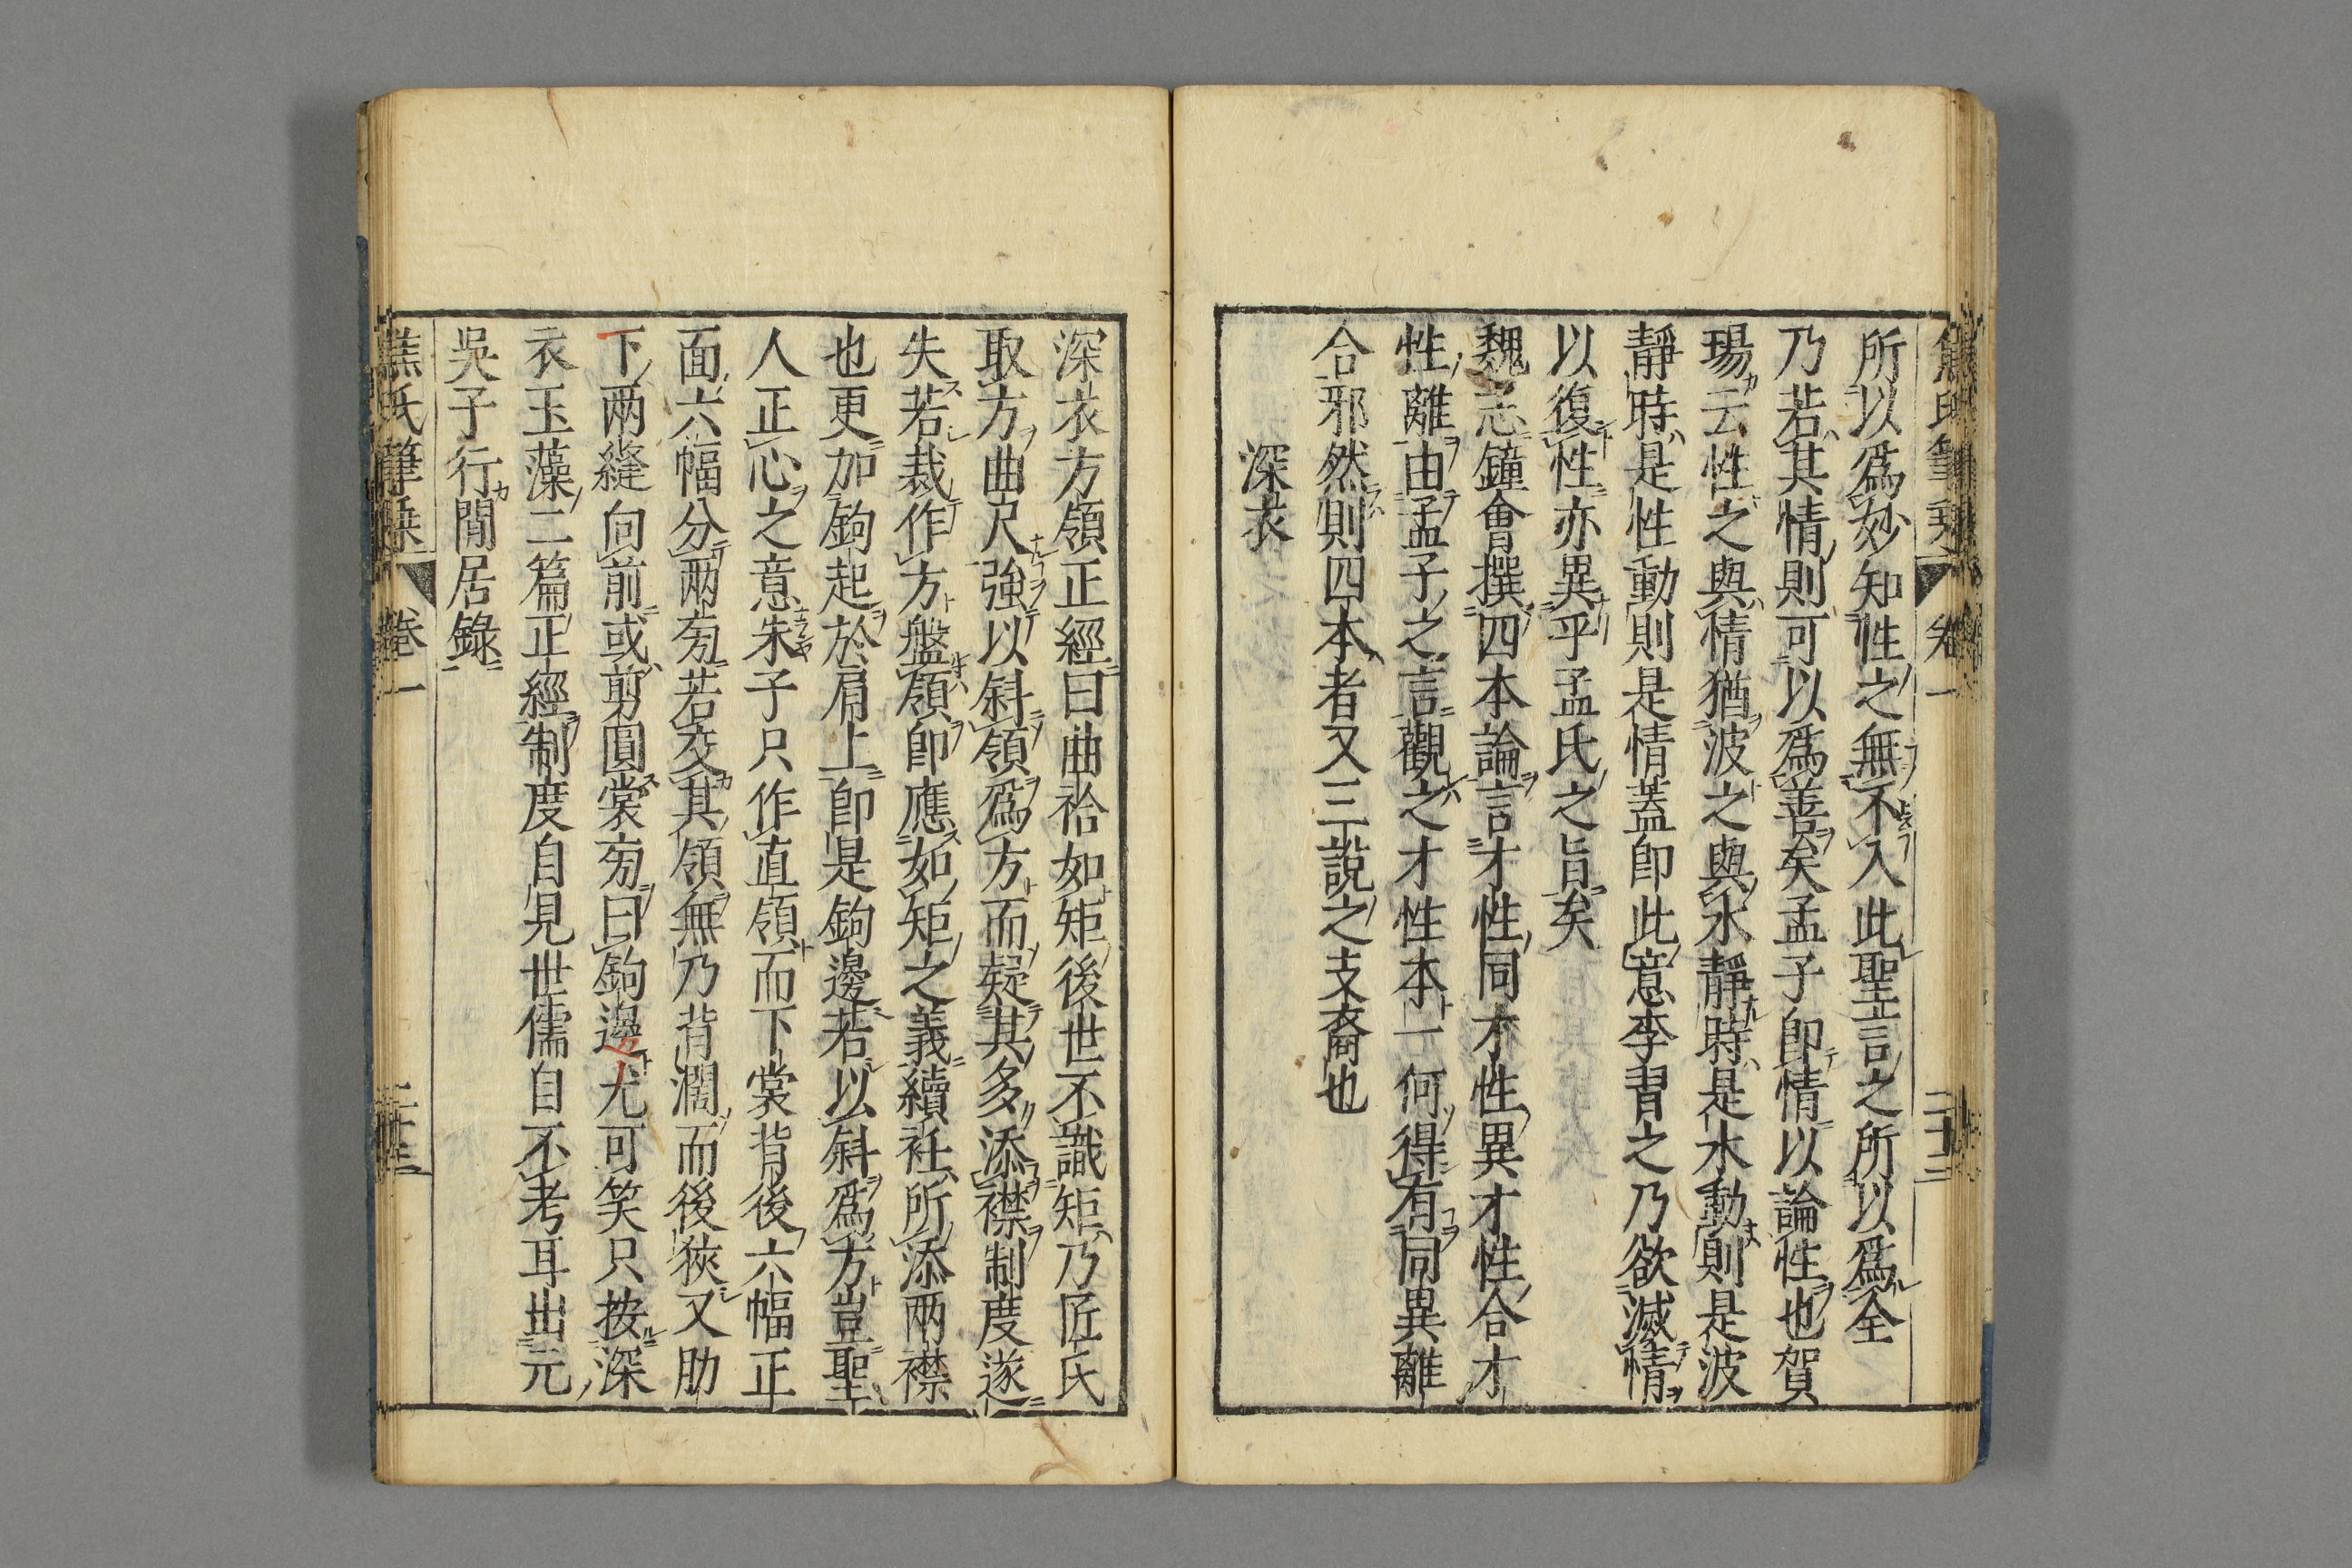 焦氏筆乗 卷一 二十二
所以爲妙知性之無不入此聖言之所以爲全
乃若其情則可以爲善矣孟子卽情以論性也賀
瑒云性之與情猶波之與水靜時是水動則是波
靜時是性動則是情蓋卽此意李習之乃欲滅情
以復性亦異乎孟氏之旨矣
魏志鐘會撰四本論言才性同才性異才性合才
性離由孟子之言觀之才性本一何得有同異離
合邪然則四本者又三說之支裔也
深衣
深衣方領正經曰曲袷如矩後世不識矩乃匠氏
取方曲尺強以斜領爲方而疑其多添襟制度遂
失若裁作方盤領卽應如矩之義續衽所添两襟
也更加鉤起於肩上卽是鉤邊若以斜爲方豈聖
人正心之意朱子只作直領而下裳背後六幅正
面六幅分两旁若交其領無乃背濶而後狹又肋
下两縫向前或剪圓裳旁曰鉤邊尤可笑只按深
衣玉藻二篇正經制度自見世儒自不考耳出元
吳子行閒居錄
焦氏筆乗 卷一